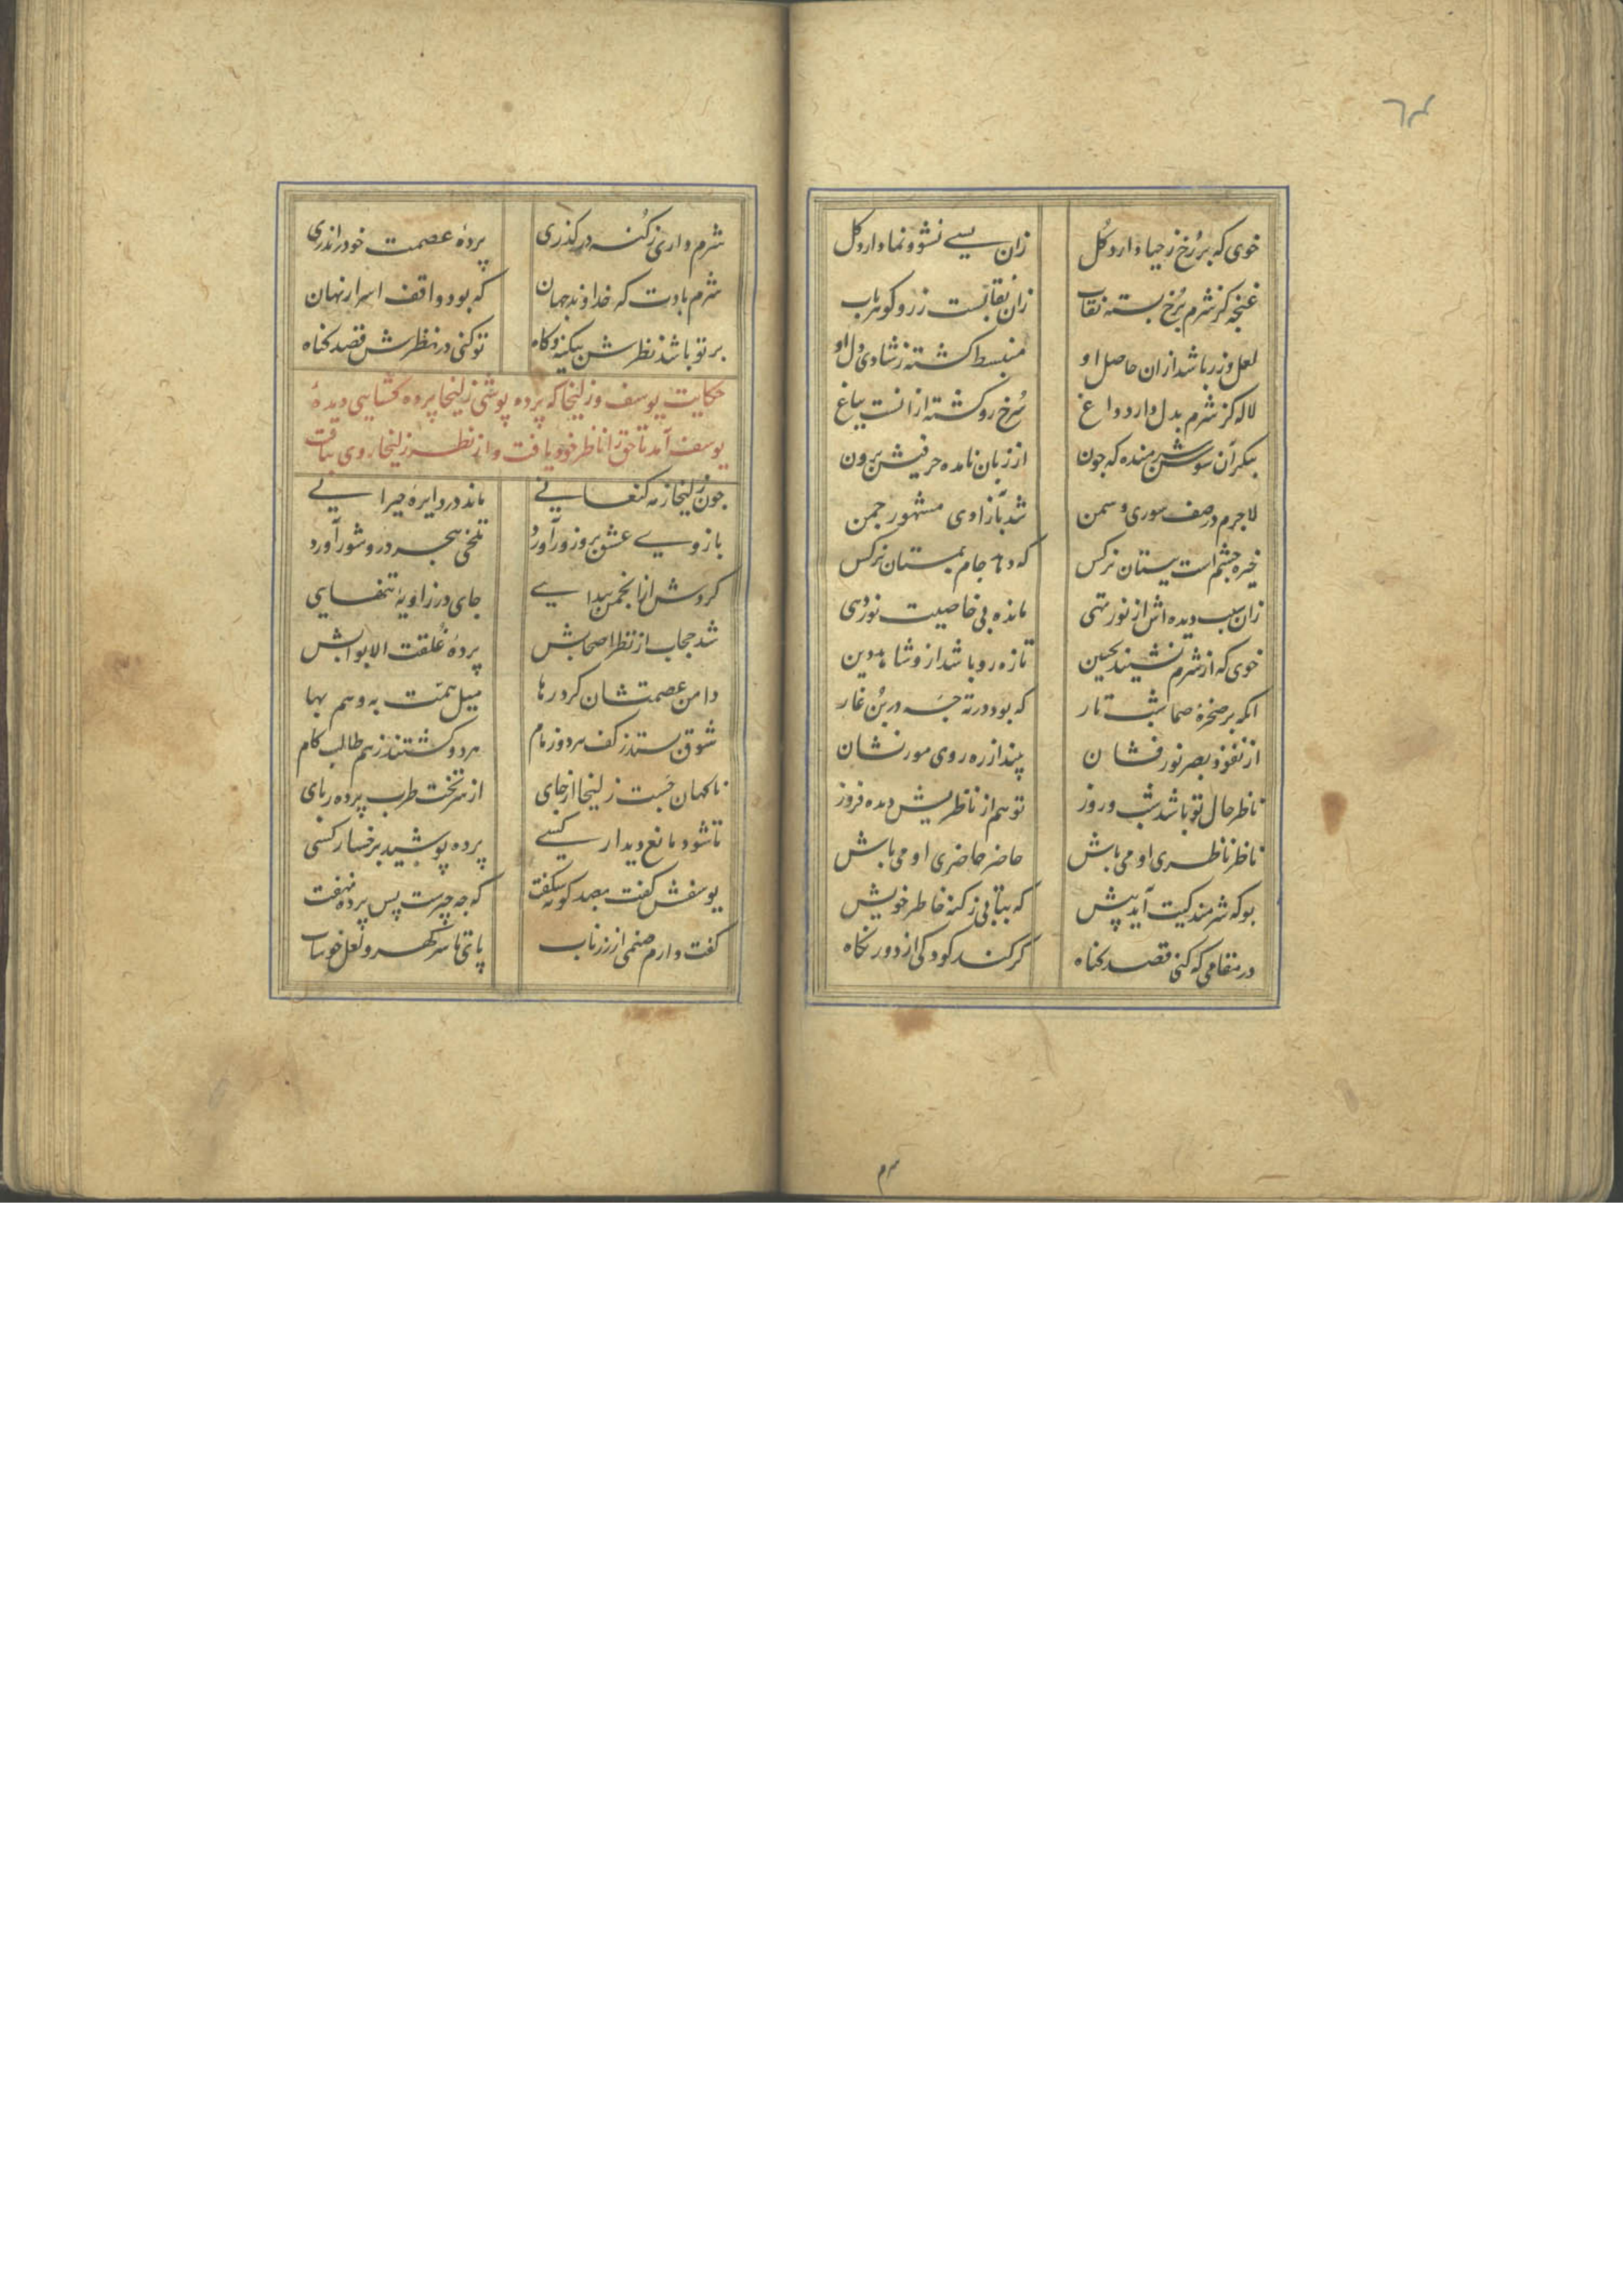 ۶۴
خوی که بر رخ ز حیا دارد گل زان بسے نشو و نما دارد گل
غنچه کز شرم برخ بسته نقاب زان نقابست زر و گوهر یاب
لعل و زر باشد ازان حاصل او منبسط گشته ز شادی دل او
لاله کز شرم بدل دارد داغ سرخ رو گشته ازانست بباغ
بنگر آن سوسن شرمنده که چون از زبان نامده حرفیش برون
لاجرم در صف سوری و سمن شد بآزادی مشهور چمن
خیره چشم است ببستان نرکس که دهد جام بمستان نرکس
زان سبب دیده اش از نور تهی مانده بی خاصیت نور دهی
خوی که از شرم نشیند بجبین تازه رو باشد ازو شاهد دین
آنکه بر صخرهٔ صما شب تار که بود در ته چه در بن غار
از نفوذ بصر نور فشان بیند از ره روی مور نشان
ناظر حال تو باشد شب و روز تو هم از ناظریش دیده فروز
ناظر ناظری او می باش حاضر حاضری او می باش
بو که شرمندکیت آید پیش که بتابی ز کنه خاطر خویش
در مقامی که کنی قصد کناه کر کند کودکی از دور نکاه
۴۳
شرم داری ز کنه در کذری پردهٔ عصمت خود را ندری
شرم بادت که خداوند جهان که بود واقف اسرار نهان
بر تو باشد نظرش بیکه و کاه تو کنی در نظرش قصد کناه
حکایت یوسف و زلیخا که پرده پوشی زلیخا پرده کشایی دیدهٔ
یوسف آمد تا حق را ناظر خود یافت و از نظر زلیخا روی بتافت
چون زلیخا ز مه کنعانے ماند در دایرهٔ حیرانے
بازوے عشق برو زور آورد تلخی هجر درو شور آورد
کردش از انجمن پیدایے جای در زاویهٔ تنهایی
شد حجاب از نظر اصحابش پردهٔ غلقت الابوابش
دامن عصمتشان کرد رها میل همت به و هم بها
شوق بستد ز کف هر دو زمام هر دو کشتند ز هم طالب کام
ناکهان جست زلیخا از جای از سر تخت طرب پرده ربای
تا شود مانع دیدار کسے پرده پوشید برخسار کسی
یوسفش کفت بصد کونه شکفت که چه چیزست پس پرده نهفت
کفت دارم صنمی از زر ناب پای تا سر کهر و لعل خوشاب